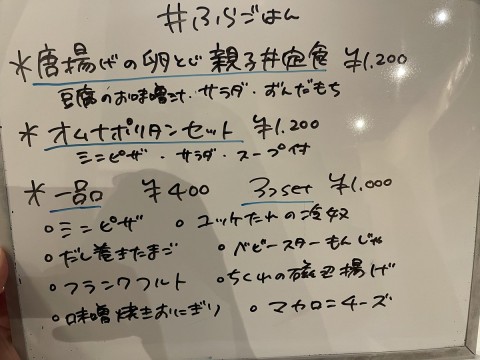 #ふらごはん
*唐揚げの卵とじ 親子丼定食 ¥1.200
豆腐のお味噌汁・サラダ・ずんだもち
*オムナポリタンセット ¥1.200
ミニピザ・サラダ・スープ付
*一品 ¥400 3つset ¥1.000
○ミニピザ ○ユッケたれの冷奴
○だし巻きたまご ○ベビースターもんじゃ
○フランクフルト ○ちくわの磯辺揚げ
○味噌焼きおにぎり ○マカロニチーズ